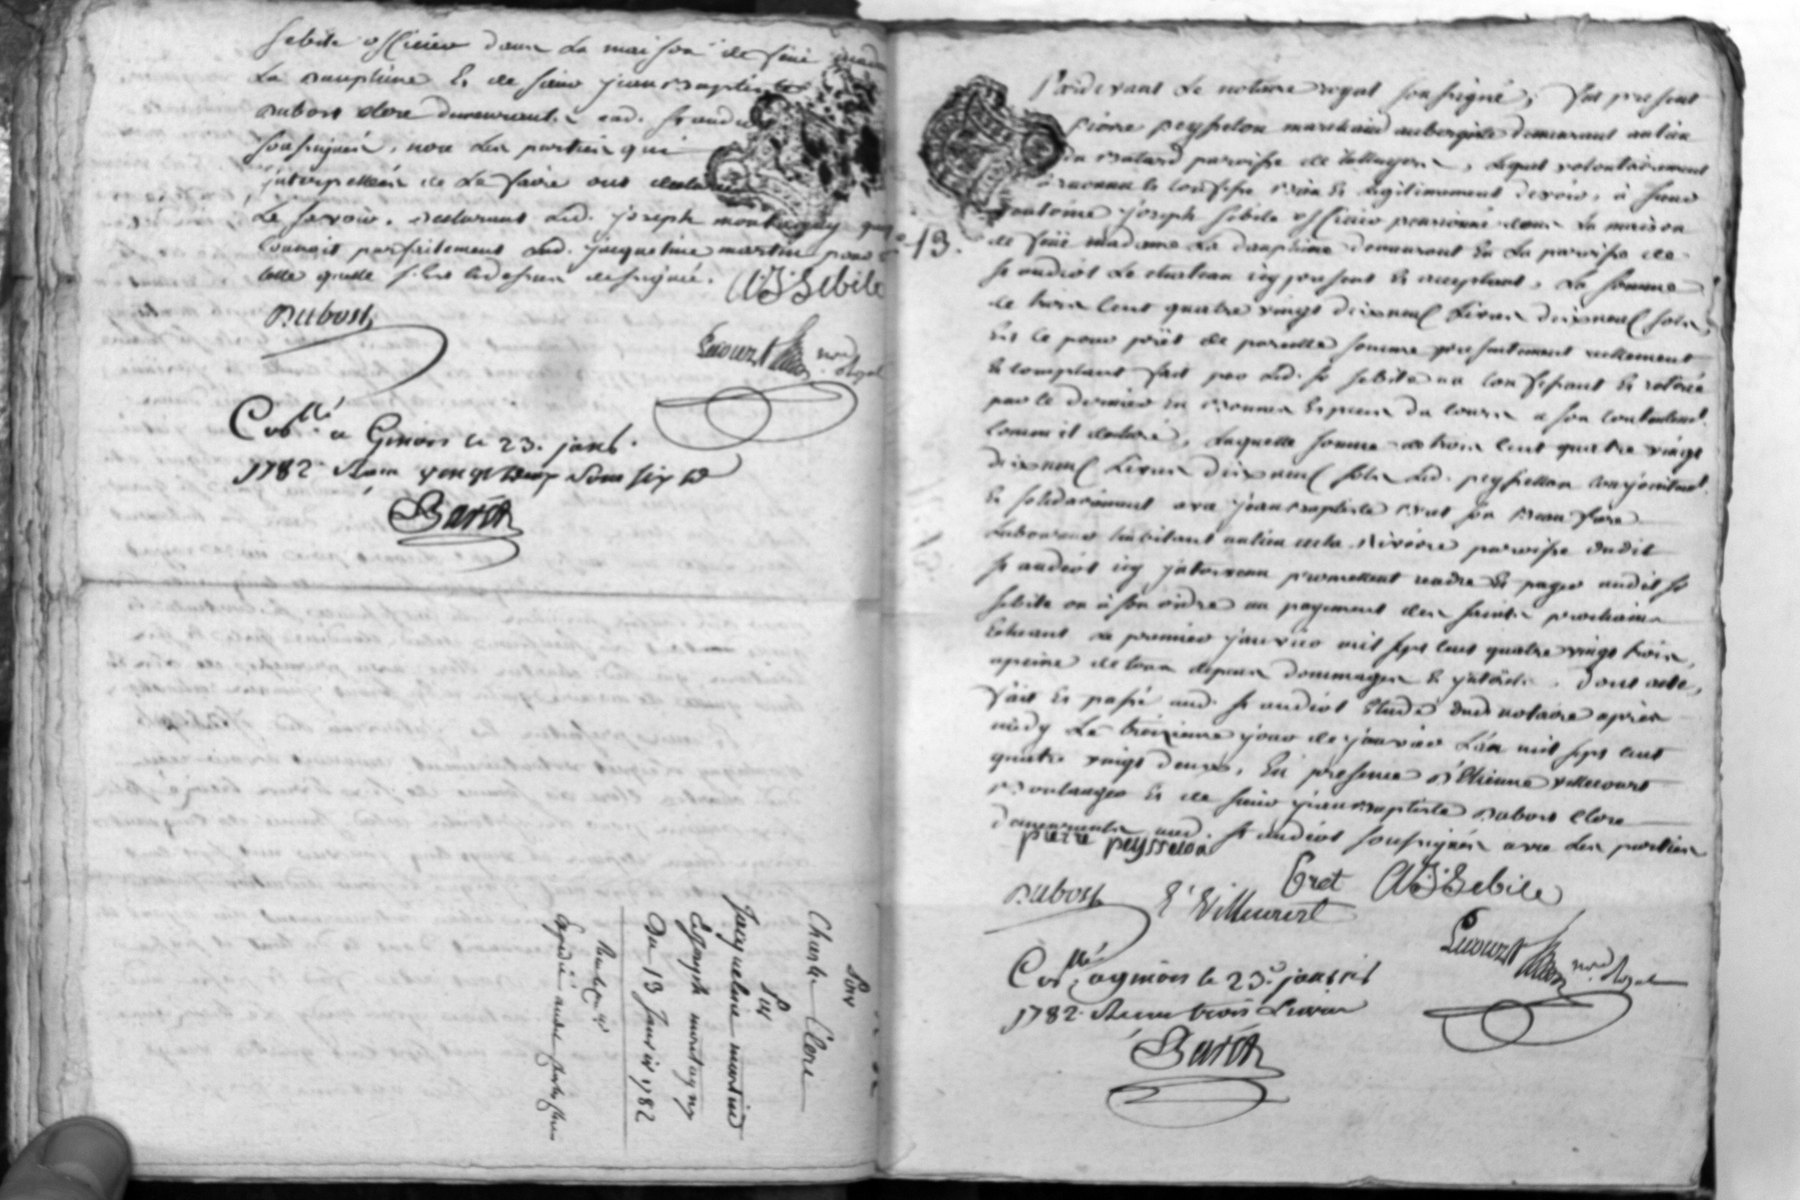 Sebile officier dans la maison de feüe madame
La Dauphine & de sieur jean Baptiste
Dubost clerc demeurants aud. St andeol
soussignés, non les parties qui
interpellées de le faire ont declaré
le sçavoir. declarant led. joseph montagny
connoit parfaitement lad. jacqueline martin pour
telle quelle s'est cy dessus designée.
AJSebile
Dubost
nore. Royal
Collé. a Givors le 23. janv.
1782. Recu
Barot
Pour
Charle Clerc
Sur
Jacqueline martin
& Joseph montagny
Du 13 Janvier 1782
Expedié
13.
Pardevant le notaire royal soussigné, fut present
pierre peysselon marchand aubergiste demeurant au lieu
du Batard paroisse de , lequel volontairement
a reconnu & confessé bien & legitimement devoir, à sieur
antoine joseph Sebile officier pensionné dans la maison
de feüe madame La dauphine demeurant en la paroisse de
St andéol le chateau icy present & acceptant, la somme
de trois cent quatre vingt dixneuf Livres dixneuf sols,
Et ce pour prêt de pareille somme presentement reellement
& comptant fait par led. sr Sebile
par le dernier en bonnes especes du cours a son contentement
comme il declare, laquelle somme de trois cent quatre vingt
dixneuf Livres dixneuf sols led. peysselon conjointement
& solidairement avec jean baptiste Bret son Beau frere
Laboureur habitant au lieu de la Riviere paroisse dudit
St andéol icy promettent rendre & payer audit sr
Sebile ou à son ordre au payement des saints prochains
Echeant le premier janvier mil sept cent quatre vingt trois,
apeine de tous depens dommages & . Dont acte,
fait & passé aud. St andéol Etude dud. notaire après
midy Le treizieme jour de janvier L'an mil sept cent
quatre vingt deux, En presence d'Etienne Villecourt
Boulanger & de sieur jean Baptiste Dubost clerc
demeurants aud. St andéol soussignés avec les parties
pierre peysselon
Bret
AJSebile
Dubost
E. Villecourt
nore. Royal
Collé. a givors le 23. janvier
1782. Recu trois Livres
Barot